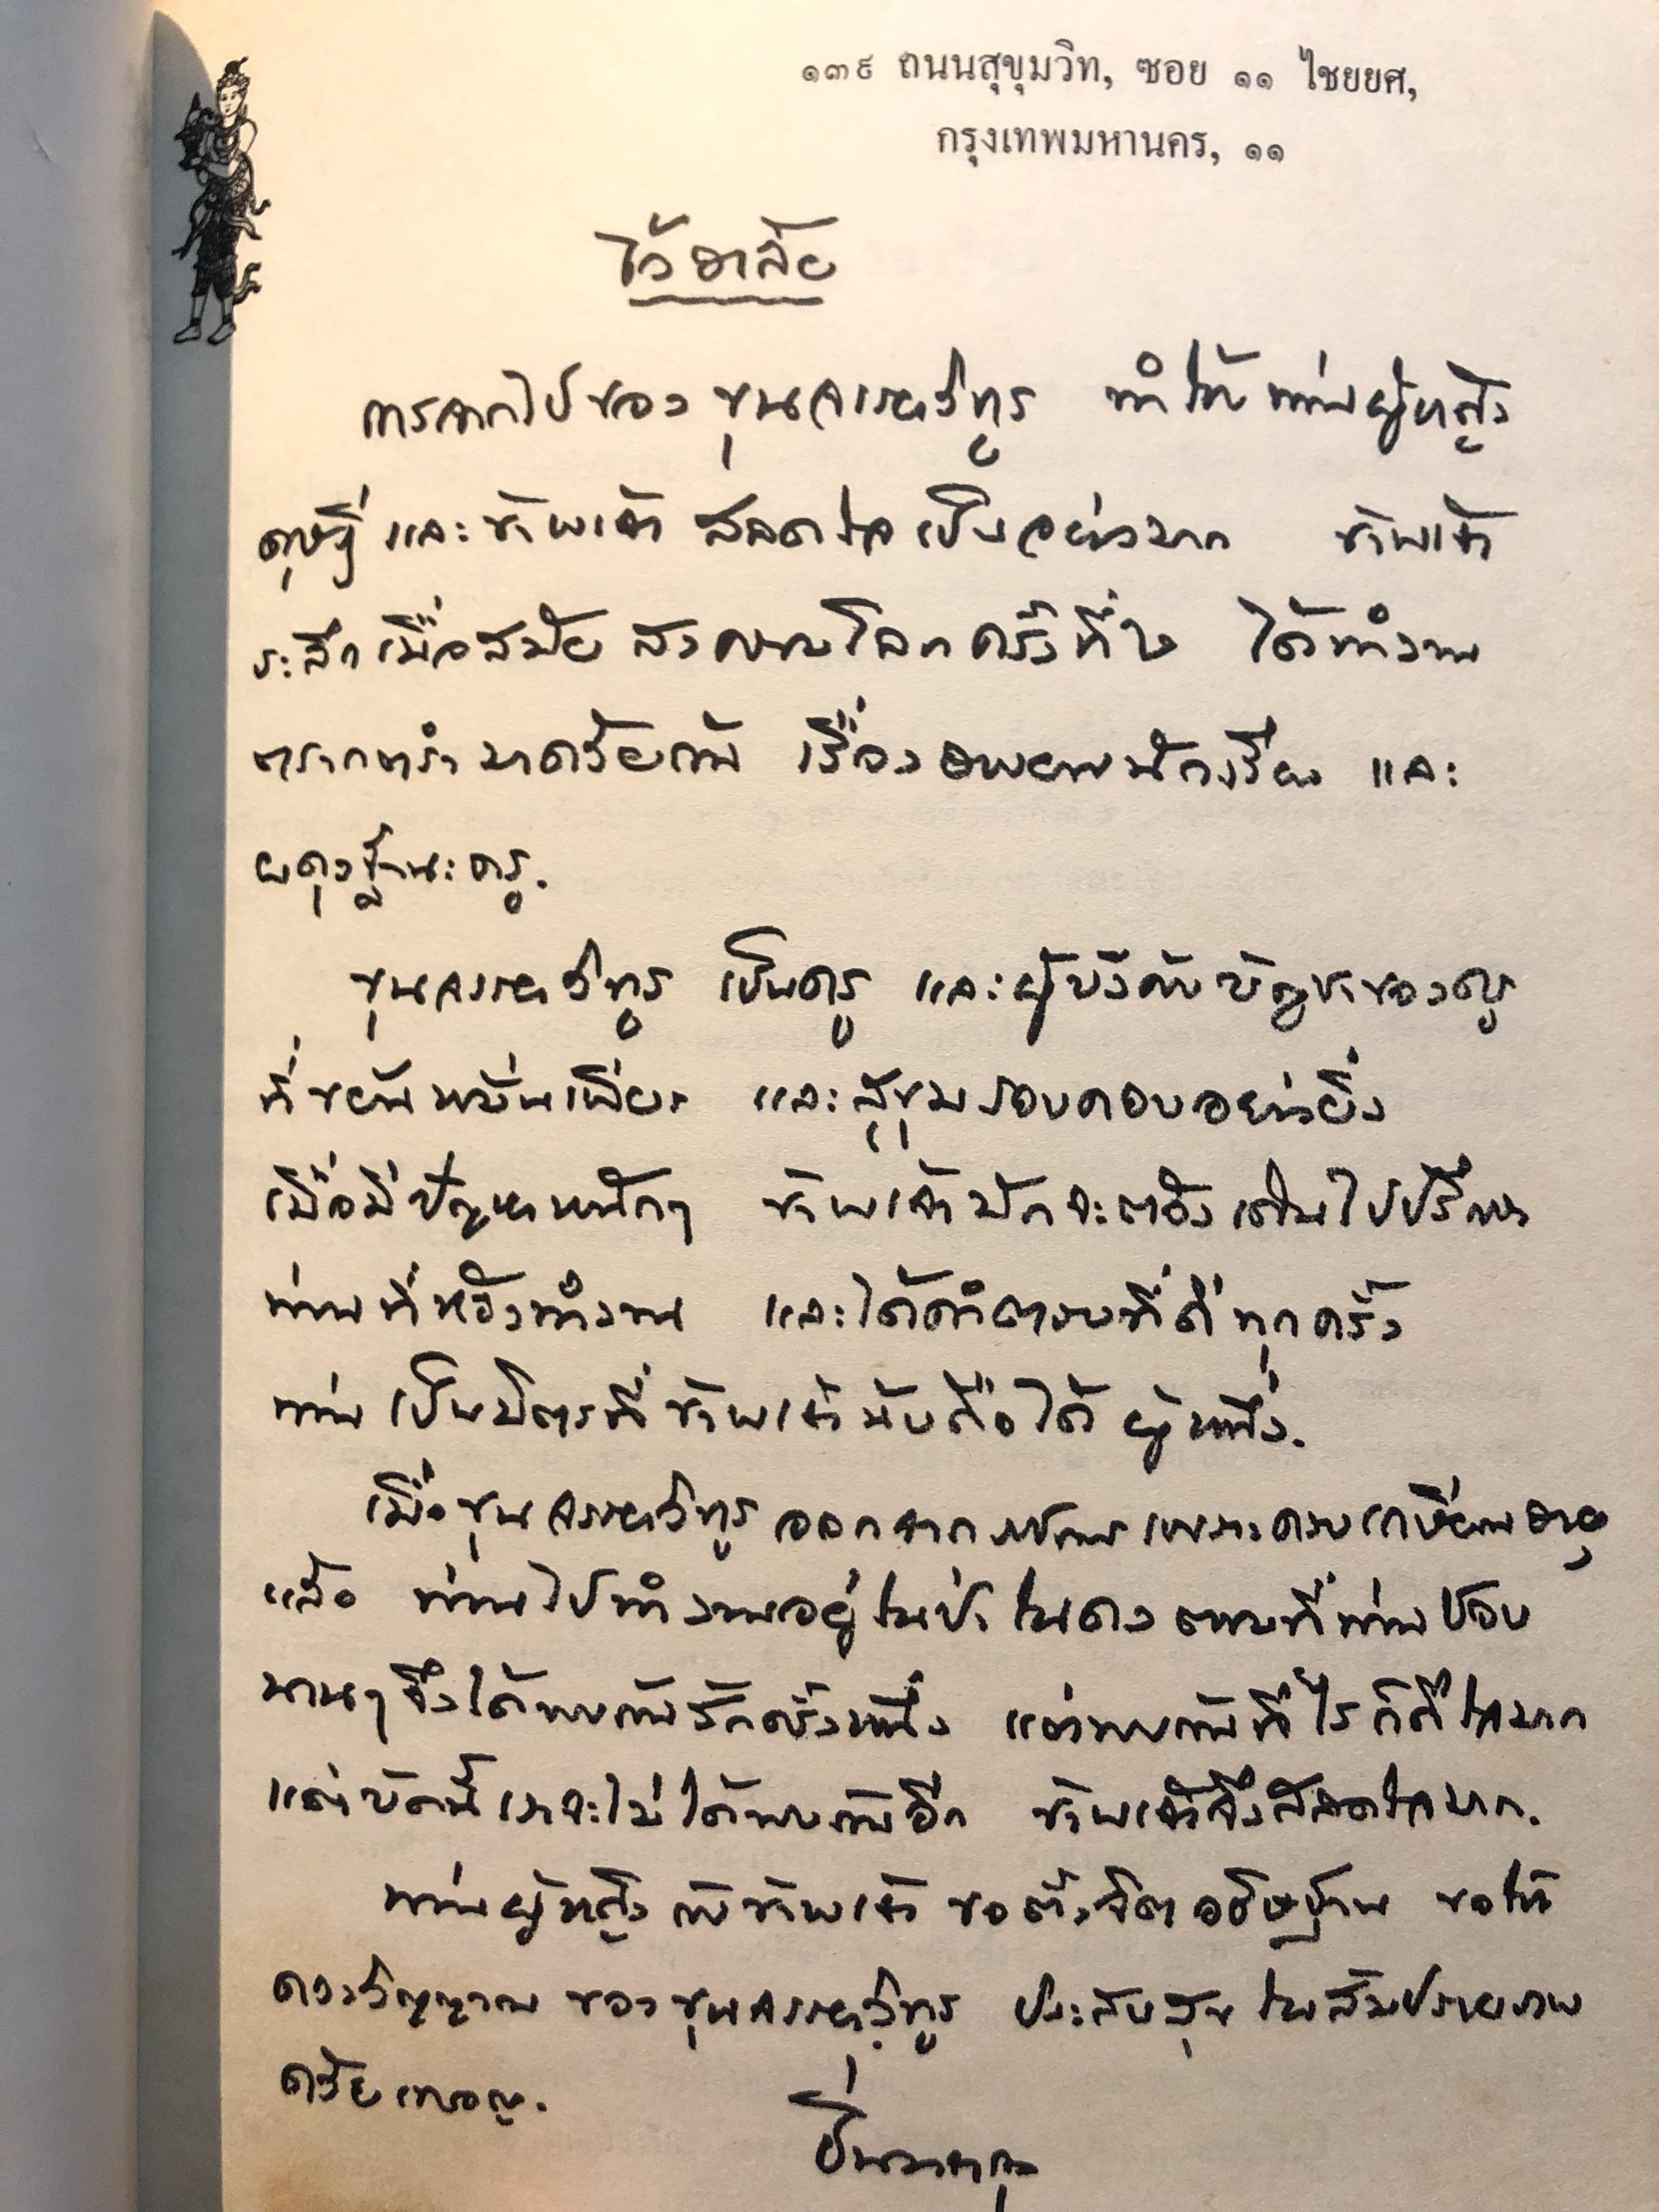 ๑๓๙ ถนนสุขุมวิท, ซอย ๑๑ ไชยยศ,
กรุงเทพมหานคร, ๑๑
ไว้อาลัย
การจากไปของ ขุนจรรยาวิทูร ทำให้ท่านผู้หญิง
ดุษฎี และข้าพเจ้า สลดใจเป็นอย่างมาก ข้าพเจ้า
ระลึกเมื่อสมัย สงครามโลกครั้งที่ ๒ ได้ทำงาน
ตรากตรำมาด้วยกัน เรื่องอพยพนักเรียน และ
ผดุงฐานะครู.
ขุนจรรยาวิทูร เป็นครู และผู้บังคับบัญชาของครู
ที่ขยันหมั่นเพียร และสุขุมรอบคอบอย่างยิ่ง
เมื่อมีปัญหาหนักๆ ข้าพเจ้ามักจะต้องเดินไปปรึกษา
ท่านที่ห้องทำงาน และได้คำตอบที่ดีทุกครั้ง
ท่านเป็นมิตรที่ข้าพเจ้านับถือได้ ผู้หนึ่ง.
เมื่อขุนจรรยาวิทูร ออกจากราชการเพราะครบเกษียณอายุ
แล้ว ท่านไปทำงานอยู่ในป่าในดง ตามที่ท่านชอบ
นานๆ จึงได้พบกันสักครั้งหนึ่ง แต่พบกันทีไรก็ดีใจมาก
แต่บัดนี้เราจะไม่ได้พบกันอีก ข้าพเจ้าจึงสลดใจมาก.
ท่านผู้หญิงกับข้าพเจ้า ขอตั้งจิตอธิษฐาน ขอให้
ดวงวิญญาณ ของขุนจรรยาวิทูร ประสบสุข ในสัมปรายภพ
ด้วยเทอญ.